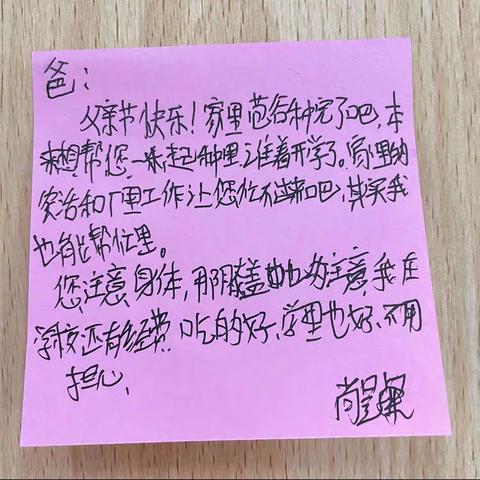 爸：
父亲节快乐！家里苞谷种完了吧，本
来想帮您一起种里，谁着开学了。家里的
农活和厂里工作让您忙不过来吧，其实我
也能帮忙里。
您注意身体，那膝盖也多注意，我在
学校还有经费，吃的好，学里也好，不用
担心，
尚